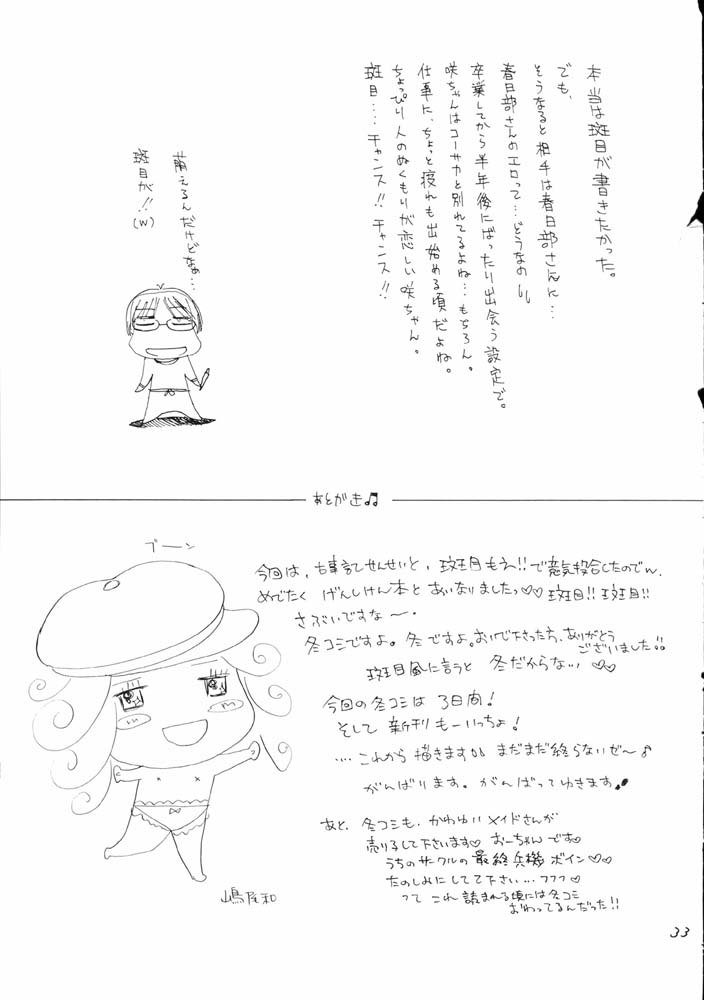 本当は斑目が書きたかった。
でも、
そうなると相手は春日部さんに…
春日部さんのエロって…どうなの
卒業してから半年後にばったり出会う設定で。
咲ちゃんはコーサカと別れてるよね…もちろん。
仕事に、ちょっと疲れも出始める頃だよね。
ちょっぴり人のぬくもりが恋しい咲ちゃん。
斑目…チャンス!!チャンス!!
萌えるんだけどなぁ…
斑目が!!
(W)
あとがき♫
ブーン
今回は、古事記せんせいと、斑目もえ!!で意気投合したのでw、
めでたく げんしけん本と あいなりましたっ♡♡ 斑目!! 斑目!!
さぶいですな〜・
冬コミですよ。冬ですよ。おいで下さった方、ありがとう
ございました!!
斑目風に言うと 冬だからな… ♡♡
今回の冬コミは 3日間!
そして 新刊もーいっちょ!
‥‥これから描きます まだまだ終らないぜ〜♪
がんばります。がんばってゆきます♪
あと、冬コミも、かわゆい メイドさんが
売り子して下さいます♡ おーちゃんです♡
うちのサークルの 最終兵機 ボイン♡♡
たのしみにしてて下さい…フフフ♡
って これ 読まれる頃には冬コミ
おわってるんだった!!
嶋尾和
33